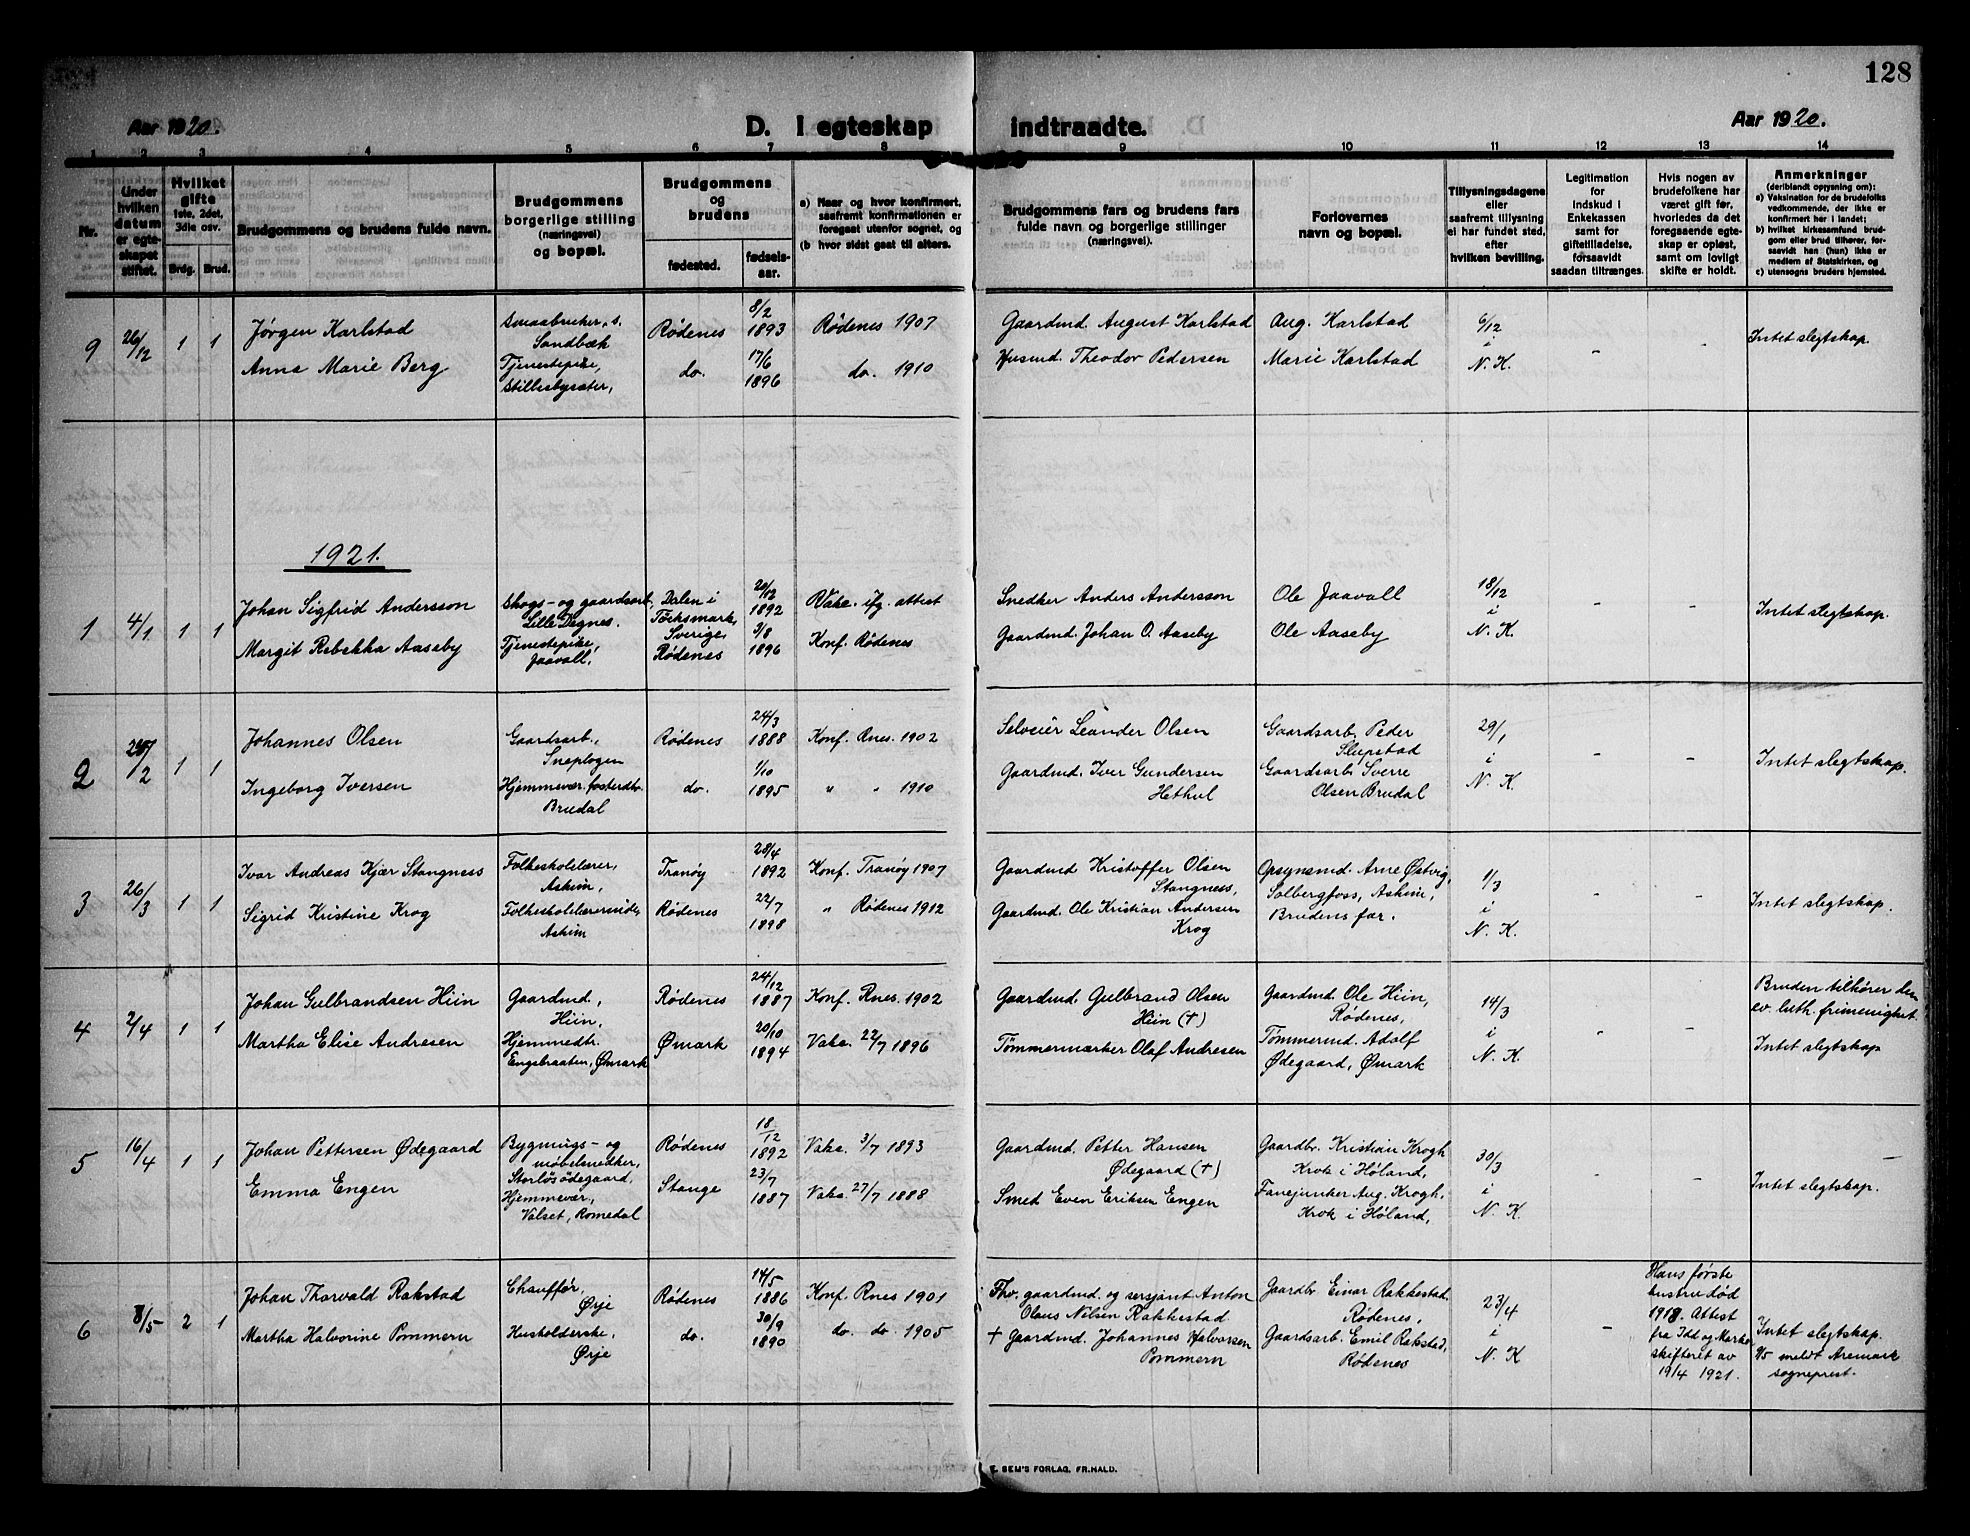 128
Aar 1920. D. I egteskap indtraadte. Aar 1920.
1 2 3 4 5 6 7 8 9 10 11 12 13 14
Nr.
Under hvilken datum er egteskapet stiftet.
Hvilket gifte 1ste, 2det, 3die osv.
Brdg. Brud.
Brudgommens og brudens fulde navn.
Brudgommens borgerlige stilling (næringsvei) og bopæl.
Brudgommens og brudens
fødested. fødselsaar.
a) Naar og hvor konfirmert, saafremt konfirmationen er foregaat utenfor sognet, og
(b hvor sidst gaat til alters.
Brudgommens fars og brudens fars fulde navn og borgerlige stillinger (næringsvei).
Forlovernes navn og bopæl.
Tillysningsdagene eller saafremt tillysning ei har fundet sted, efter hvilken bevilling.
Legitimation for indskud i Enkekassen samt for giftetilladelse, forsaavidt saadan tiltrænges.
Hvis nogen av brudefolkene har været gift før, hvorledes da det foregaaende egteskap er opløst, samt om lovligt skifte er holdt.
Anmerkninger (deriblandt oplysning om):
a) Vaksination for de brudefolks vedkommende, der ikke er konfirmert her i landet;
b) hvilket kirkesamfund brudgom eller brud tilhører, forsaavidt han (hun) ikke er medlem af Statskirken, og
c) utensogns bruders hjemsted.
9 26/12 1 1
Jørgen Karlstad
Anna Marie Berg
Smaabruker, s. Sandbæk
Tjenestepike, Stillesbysæter,
Rødenes 8/2 1893
do. 17/6 1896
Rødenes 1907
do. 1910
Gaardmd. August Karlstad
Husmd. Theodor Pedersen
Aug. Karlstad
Marie Karlstad
6/12 i N. K.
-
-
Intet slegtskap.
1921.
1 4/1 1 1
Johan Sigfrid Andersson
Margit Rebekka Aaseby
Skogs- og gaardsarb, Lille Degnes.
Tjenestepike, Jaavall,
Dalen i Töcksmark, Sverige, 20/12 1892
Rødenes 3/8 1896
Vakc. ifg. attest
Konf. Rødenes
Snedker Anders Andersson
Gaardmd. Johan O. Aaseby
Ole Jaavall
Ole Aaseby
18/12 i N. K.
-
-
Intet slegtskap.
2 /2 1 1
Johannes Olsen
Ingeborg Iversen
Gaardsarb., Sneplogen
Hjemmevær. fosterdtr. Brudal
Rødenes 24/3 1888
do. 1/10 1895
Konf. Rnes. 1902
" " 1910
Selveier Leander Olsen
Gaardmd. Iver Gundersen Hethul
Gaardsarb. Peder Slupstad
Gaardsarb. Sverre Olsen Brudal
29/1 i N. K.
-
-
Intet slegtskap.
3 26/3 1 1
Ivar Andreas Kjær Stangness
Sigrid Kristine Krog
Folkeskolelærer, Askim,
Folkeskolelærerinde, Askim
Tranøy 28/4 1892
Rødenes 22/7 1898
Konf. Tranøy 1907
" Rødenes 1912
Gaardmd. Kristoffer Olsen Stangness,
Gaardmd. Ole Kristian Andersen Krog
Opsynsmd. Arne Østvig, Solbergfoss, Askim,
Brudens far.
1/3 i N. K.
-
-
Intet slegtskap.
4 2/4 1 1
Johan Gulbrandsen Hiin
Martha Elise Andresen
Gaardmd., Hiin,
Hjemmedtr. Engsbraaten, Ømark
Rødenes 24/12 1887
Ømark 20/10 1894
Konf. Rnes. 1902
Vakc. 22/7 1896
Gaardmd. Gulbrand Olsen Hiin (+)
Tømmermærker Olaf Andresen
Gaardmd. Ole Hiin, Rødenes,
Tømmermd. Adolf Ødegaard, Ømark
14/3 i N. K.
-
-
Bruden tilhører den ev. luth. frimenighet.
Intet slegtskap
5 16/4 1 1
Johan Pettersen Ødegaard
Emma Engen
Bygnings- og møbelsnedker, Storløsødegaard,
Hjemmevær, Valset, Romedal
Rødenes 18/12 1892
Stange 23/7 1887
Vakc. 3/7 1893
Vakc. 27/7 1888
Gaardmd. Petter Hansen Ødegaard (+)
Smed Even Eriksen Engen
Gaardbr. Kristian Krogh Krok i Høland,
Fanejunker Aug. Krogh, Krok i Høland,
30/3 i N. K.
-
-
Intet slegtskap.
6 8/5 2 1
Johan Thorvald Rakstad
Martha Halvorine Pommern
Chauffør, Ørje
Husholderske, Ørje
Rødenes 14/5 1886
do. 30/9 1890
Konf. Rnes 1901
do. do. 1905
Fhv. gaardmd. og sersjant Anton Olaus Nilsen Rakkestad
+ Gaardmd. Johannes Halvorsen Pommern
Gaardbr. Einar Rakkestad. Rødenes,
Gaardsarb. Emil Rakstad, Rødenes
23/4 i N. K
-
Hans første hustru død 1918. Attest fra Idd og Marker skifteret av 19/4 1921.
Intet slegtskap.
9/5 meldt Aremark sogneprest.
E. SEM'S FORLAG, FR.HALD.